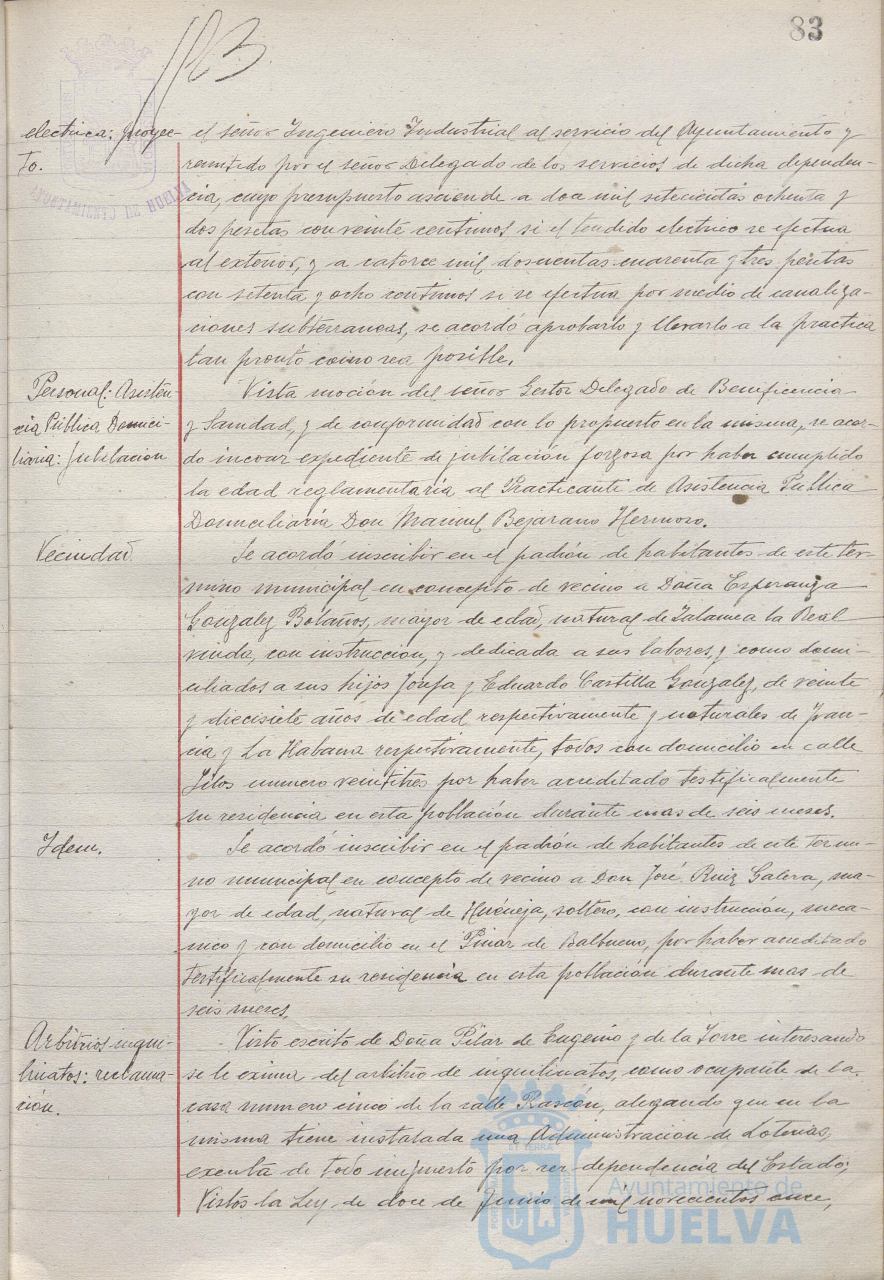 83
113
AYUNTAMIENTO DE HUELVA
electrica: proyec-
to.
el señor Ingeniero Industrial al servicio del Ayuntamiento y
remitido por el señor Delegado de los servicios de dicha dependen-
cia, cuyo presupuesto asciende a doce mil setecientas ochenta y
dos pesetas con veinte centimos si el tendido electrico se efectua
al exterior, y a catorce mil doscientas cuarenta y tres pesetas
con setenta y ocho centimos si se efectua por medio de canaliza-
ciones subterraneas, se acordó aprobarlo y llevarlo a la practica
tan pronto como sea posible.
Personal: Asisten-
cia Pública Domici-
liaria: Jubilacion
Vista moción del señor Gestor Delegado de Beneficencia
y Sanidad, y de conformidad con lo propuesto en la misma, se acor-
do incoar expediente de jubilación forzosa por haber cumplido
la edad reglamentaria al Practicante de Asistencia Publica
Domiciliaria Don Manuel Bejarano Hermoso.
Vecindad
Se acordó inscribir en el padrón de habitantes de este ter-
mino municipal en concepto de vecino a Doña Esperanza
Gonzalez Bolaños, mayor de edad, natural de Zalamea la Real
viuda, con instruccion, y dedicada a sus labores, y como domi-
ciliados a sus hijos Josefa y Eduardo Castilla Gonzalez, de veinte
y diecisiete años de edad respectivamente y naturales de Fran-
cia y La Habana respectivamente, todos con domicilio en calle
numero veintitres por haber acreditado testificalmente
su residencia en esta población durante mas de seis meses.
Idem.
Se acordó inscribir en el padrón de habitantes de este termi-
no municipal en concepto de vecino a Don José Ruiz Galera, ma-
yor de edad, natural de Huéneja, soltero, con instrucción, meca-
nico y con domicilio en el Pinar de Balbueno, por haber acreditado
testificalmente su residencia en esta población durante mas de
seis meses.
Arbitrios inqui-
linatos: reclama-
ción.
Visto escrito de Doña Pilar de Eugenio y de la Torre interesando
se le exima del arbitrio de inquilinatos, como ocupante de la
casa numero cinco de la calle Rascón, alegando que en la
misma tiene instalada una Administracion de Loterias,
exenta de todo impuesto por ser dependencia del Estado;
Vistos la Ley de doce de Junio de mil novecientos once,
Ayuntamiento de
HUELVA